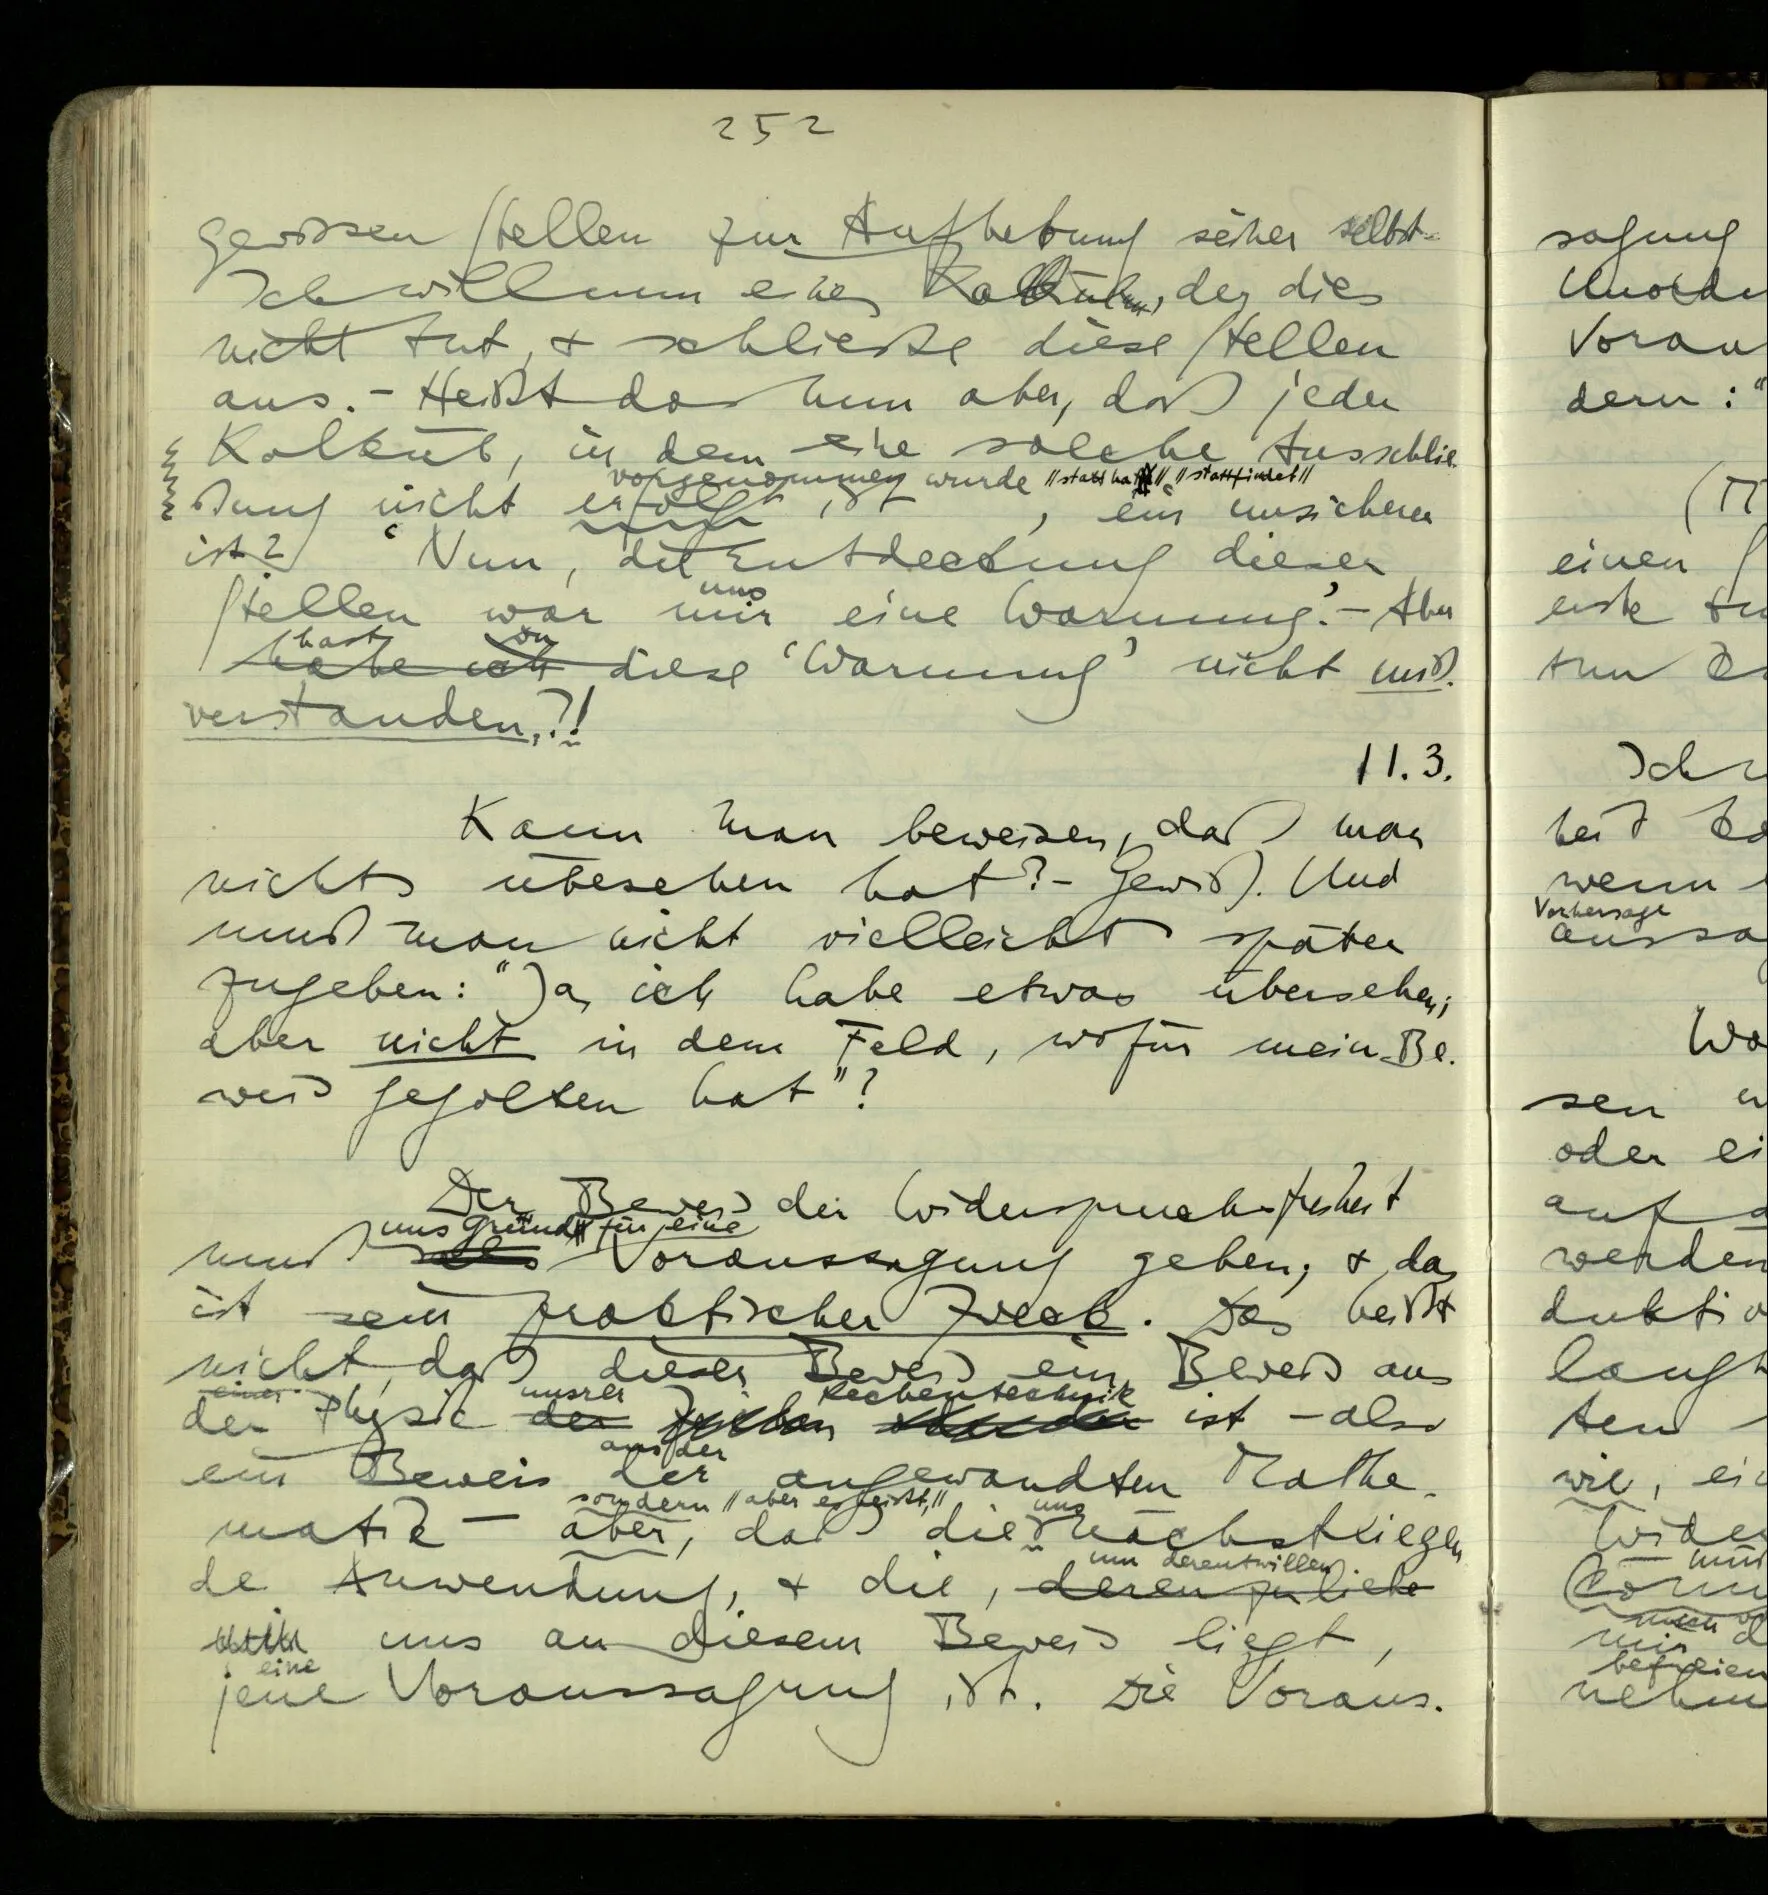 252
gewissen Stellen zur Aufhebung seiner selbst.
Ich will nun einen Kalkül, der dies
nicht tut, & schließe diese Stellen
aus. – Heißt das nun aber, daß jeder
Kalkül, in dem eine solche Ausschlie-
vorgenommen wurde //statt hat// //stattfindet//
ßung nicht erfolgt ist, ein unsicherer
ist? ‘Nun, die Entdeckung dieser
uns
Stellen war mir eine Warnung’. – Aber
hast Du
habe ich diese ‘Warnung’ nicht miß-
verstanden?!
11.3.
Kann man beweisen, daß man
nichts übesehen hat? – Gewiß. Und
muß man nicht vielleicht später
zugeben: “Ja, ich habe etwas übersehen;
aber nicht in dem Feld, wofür mein Be-
weis gegolten hat”?
Der Beweis der Widerspruchsfreiheit
uns Gründe für eine
muß Voraussagung geben; & das
ist sein praktischer Zweck. Das heißt
nicht, daß dieser Beweis ein Beweis aus
einer unsrer Rechentechnik
der Physik der ist – also
aus der
ein Beweis der angewandten Mathe-
sondern //aber es heißt,// uns
matik – aber, daß die nächstliegen
um derentwillen
de Anwendung, & die, deren zuliebe
uns an diesem Beweis liegt,
eine
jene Voraussagung ist. Die Voraus-
sagung
Voran
dern: “
einen
erste
tun
Ich
heit
wenn
Vorhersage
aussa
sen
oder ei
auf
werden
duktio
langt
ten
wie, ei
Wider
mich
mir
befreien
nehm